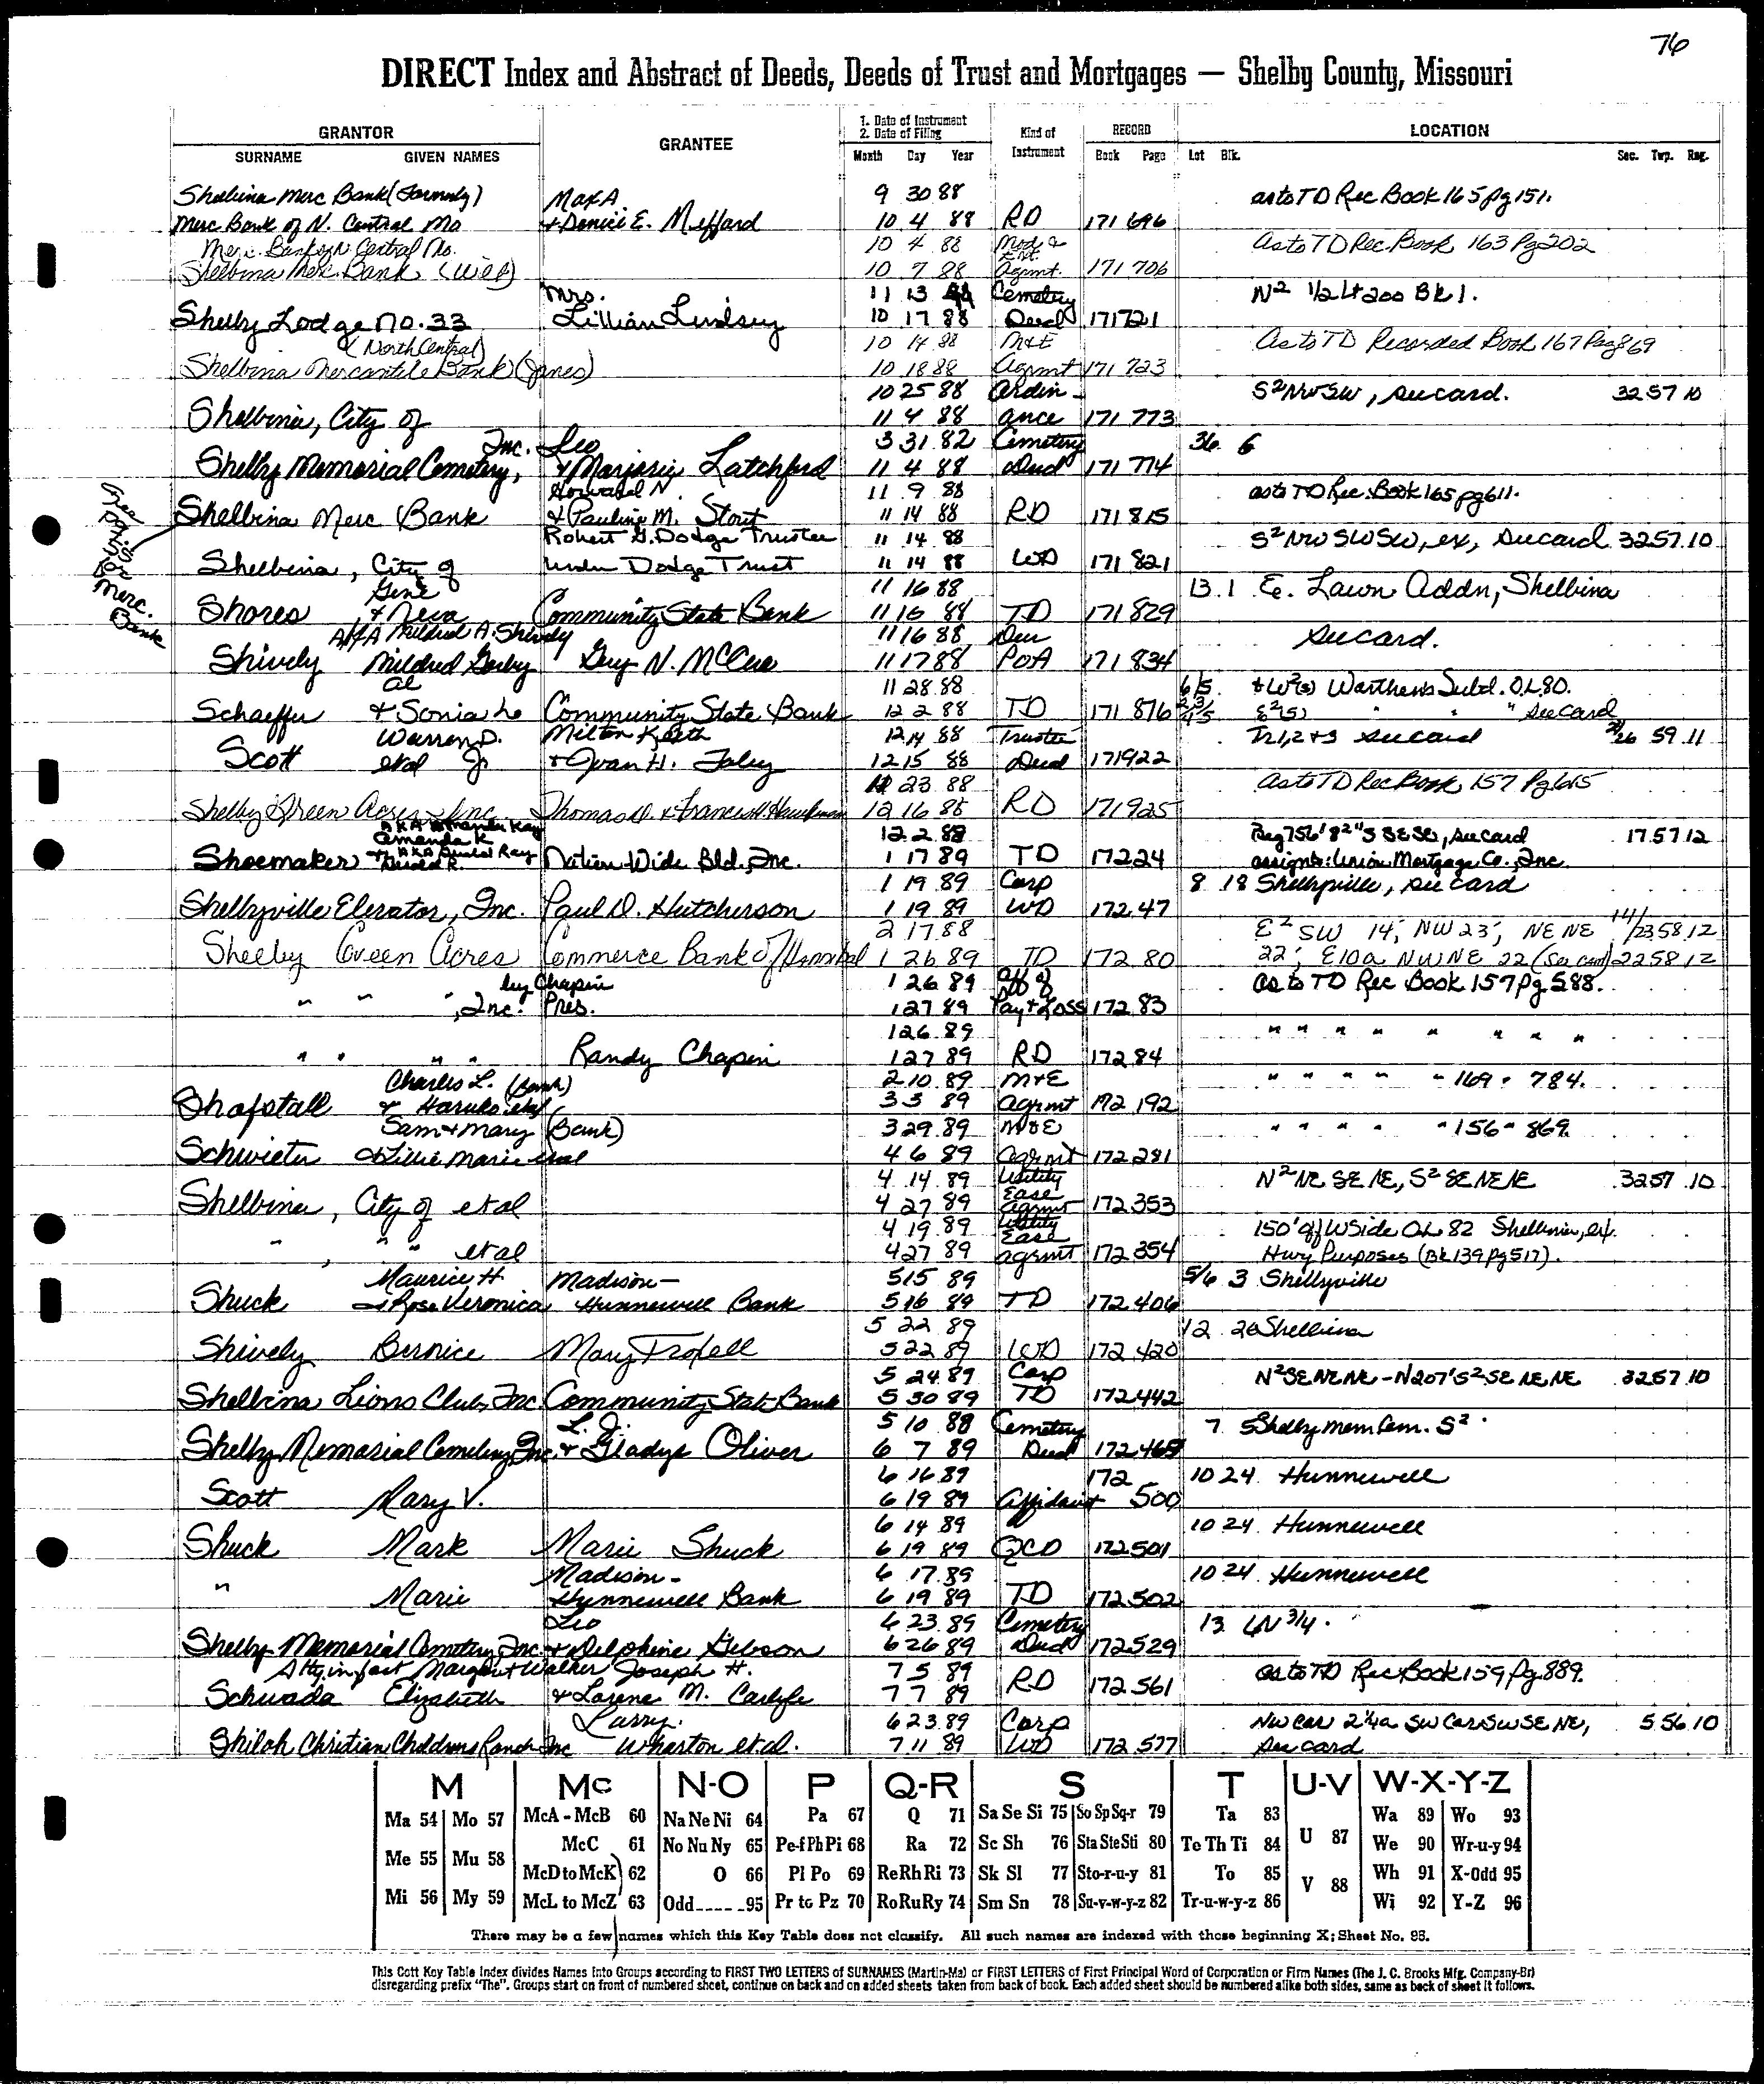 76
DIRECT Index and Abstract of Deeds, Deeds of Trust and Mortgages — Shelby County, Missouri
GRANTOR GRANTEE 1. Date of Instrument 2. Date of Filing Kind of Instrument RECORD LOCATION
SURNAME GIVEN NAMES Month Day Year Book Page Lot Blk. Sec. Twp. Rng.
Shelbina Merc Bank (Formerly) Max A. 9 30 88 as to TD Rec Book 165 pg 151.
Merc Bank of N. Central Mo & Denice E. Meffard 10 4 88 RD 171 696
Merc. Bank of N Central Mo. 10 4 88 Mod & Ext. As to TD Rec Book 163 Pg 202
Shelbina Merc. Bank 10 7 88 Agmt. 171 706
Mrs. 11 13 Cemetery N2 1/2 Lt 200 Bk 1.
Shelby Lodge No. 33 Lillian Lindsey 10 17 88 Deed 171 721
(North Central) 10 14 88 M&E As to TD Recorded Book 167 Page 869
Shelbina Mercantile Bank (Janes) 10 18 88 Agrmt 171 723
10 25 88 Ordin- S2NWSW, see card. 32 57 10
Shelbina, City of 11 4 88 ance 171 773
Inc. Leo 3 31 82 Cemetery 36 6
Shelby Memorial Cemetery, & Marjorie Latchford 11 4 88 Deed 171 774
Howard N. 11 9 88 as to TD Rec. Book 165 pg 611.
Shelbina Merc Bank & Pauline M. Stout 11 14 88 RD 171 815
See pg. 5 for Merc. Bank
Robert G. Dodge Trustee 11 14 88 S2NWSWSW, ex, see card 32 57 10
Shelbina, City of under Dodge Trust 11 14 88 WD 171 821
Gene 11 16 88 13 1 E. Lawn Addn, Shelbina
Shores & Neva Community State Bank 11 16 88 TD 171 829
AKA Mildred A. Shively 11 16 88 Dur see card.
Shively Mildred Guy N. McCue 11 17 88 PoA 171 834
Al 11 28 88 6/5 & W2(5) Warthen's Subd. O.L. 80.
Schaeffer & Sonia Le Community State Bank 12 2 88 TD 171 876 E2(5) " " " see card
Warren D. Milton Keith 12 14 88 Trustee Tr 1, 2 & 3 see card 26 59 11
Scott etal Jr & Joan H. Foley 12 15 88 Deed 171 922
23 88 As to TD Rec Book 157 Pg 615
Shelby Green Acres, Inc. Thomas D. & Frances H. Hawkman 12 16 88 RD 171 925
AKA Amanda Kay
Amanda K. 12 2 88 Beg 756' 82" S SESE, see card 17 57 12
Shoemaker & AKA Gerald Ray Gerald R. Nation Wide Bld., Inc. 1 17 89 TD 172 24 assigned: Union Mortgage Co., Inc.
1 19 89 Corp 8 18 Shelbyville, see card
Shelbyville Elevator, Inc. Paul D. Hutcherson 1 19 89 WD 172 47
2 17 88 E2 SW 14; NW 23; NE NE 14/23 58 12
Shelby Green Acres Commerce Bank of Hannibal 1 26 89 TD 172 80 22; E10a NWNE 22 (see card) 22 58 12
by Chapin 1 26 89 Aff of as to TD Rec Book 157 pg 588.
" " ", Inc. Pres. 1 27 89 Pay & Loss 172 83
1 26 89 " " " " " " " "
" " " " Randy Chapin 1 27 89 RD 172 84
Charles L. (Bank) 2 10 89 M&E " " " " " 169 " 784.
Shofstall & Haruko etal 3 3 89 agrmt 172 192
Sam & Mary (Bank) 3 29 89 M&E " " " " " 156 " 869.
Schwieter & Lillie Marie etal 4 6 89 agrmt 172 281
4 14 89 Utility Ease N2NE SE NE, S2SENENE 32 57 10
Shelbina, City of etal 4 27 89 agrmt 172 353
4 19 89 Utility Ease 150' off W Side OL 82 Shelbina, ex.
" , " " etal 4 27 89 agrmt 172 354 Hwy Purposes (Bk 139 pg 517).
Maurice H. Madison- 5 15 89 5/6 3 Shelbyville
Shuck & Rose Veronica Hunnewell Bank 5 16 89 TD 172 406
5 22 89 12 26 Shelbina
Shively Bernice Mary Trofell 5 22 89 WD 172 420
5 24 89 Corp N2SENENE - N207'S2SENENE 32 57 10
Shelbina Lions Club, Inc Community State Bank 5 30 89 TD 172 442
L. J. 5 10 88 Cemetery 7 Shelby Mem Cem. S2
Shelby Memorial Cemetery Inc. & Gladys Oliver 6 7 89 Deed 172 465
6 16 89 172 10 24 Hunnewell
Scott Mary V. 6 19 89 Affidavit 500
6 14 89 10 24 Hunnewell
Shuck Mark Marie Shuck 6 19 89 QCD 172 501
Madison- 6 17 89 10 24 Hunnewell
" Marie Hunnewell Bank 6 19 89 TD 172 502
Leo 6 23 89 Cemetery 13 LN 3/4.
Shelby Memorial Cemetery Inc. & Delphine Gibson 6 26 89 Deed 172 529
Atty in fact Margaret Walker Joseph H. 7 5 89 as to TD Rec Book 159 Pg. 889.
Schwada Elizabeth & Larene M. Carlyle 7 7 89 RD 172 561
Larry 6 23 89 Corp NW cor 2 1/4a SW Cor SWSENE, 5 56 10
Shiloh Christian Childrens Ranch Inc Wharton et al. 7 11 89 WD 172 577 see card
M Mc N-O P Q-R S T U-V W-X-Y-Z
Ma 54 Mo 57 McA - McB 60 Na Ne Ni 64 Pa 67 Q 71 Sa Se Si 75 So Sp Sq-r 79 Ta 83 U 87 Wa 89 Wo 93
McC 61 No Nu Ny 65 Pe-f Ph Pi 68 Ra 72 Sc Sh 76 Sta Ste Sti 80 Te Th Ti 84 We 90 Wr-u-y 94
Me 55 Mu 58 McD to McK 62 O 66 Pl Po 69 Re Rh Ri 73 Sk Sl 77 Sto-r-u-y 81 To 85 V 88 Wh 91 X-Odd 95
Mi 56 My 59 McL to McZ 63 Odd 95 Pr to Pz 70 Ro Ru Ry 74 Sm Sn 78 Su-v-w-y-z 82 Tr-u-w-y-z 86 Wi 92 Y-Z 96
There may be a few names which this Key Table does not classify. All such names are indexed with those beginning X; Sheet No. 95.
This Cott Key Table Index divides Names into Groups according to FIRST TWO LETTERS of SURNAMES (Martin-Ma) or FIRST LETTERS of First Principal Word of Corporation or Firm Names (The J. C. Brooks Mfg. Company-Br)
disregarding prefix "The". Groups start on front of numbered sheet, continue on back and on added sheets taken from back of book. Each added sheet should be numbered alike both sides, same as back of sheet it follows.